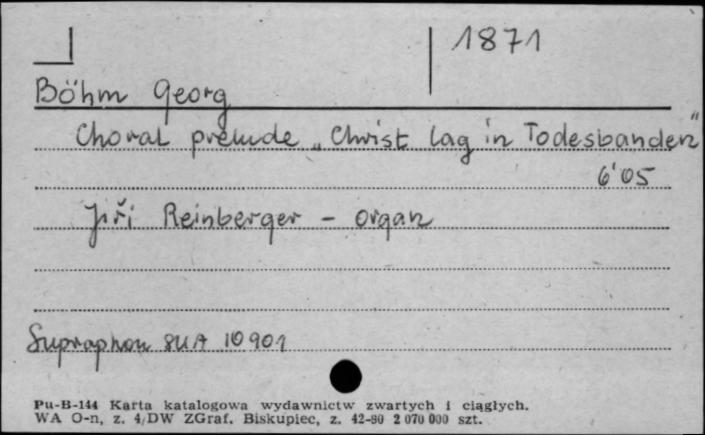 1871
Böhm Georg
Choral prelude „Christ lag in Todesbanden"
6'05
Jiří Reinberger - organ
Supraphon SUA 10901
Pu-B-144 Karta katalogowa wydawnictw zwartych i ciągłych.
WA O-n, z. 4/DW ZGraf. Biskupiec, z. 42-80 2 070 000 szt.